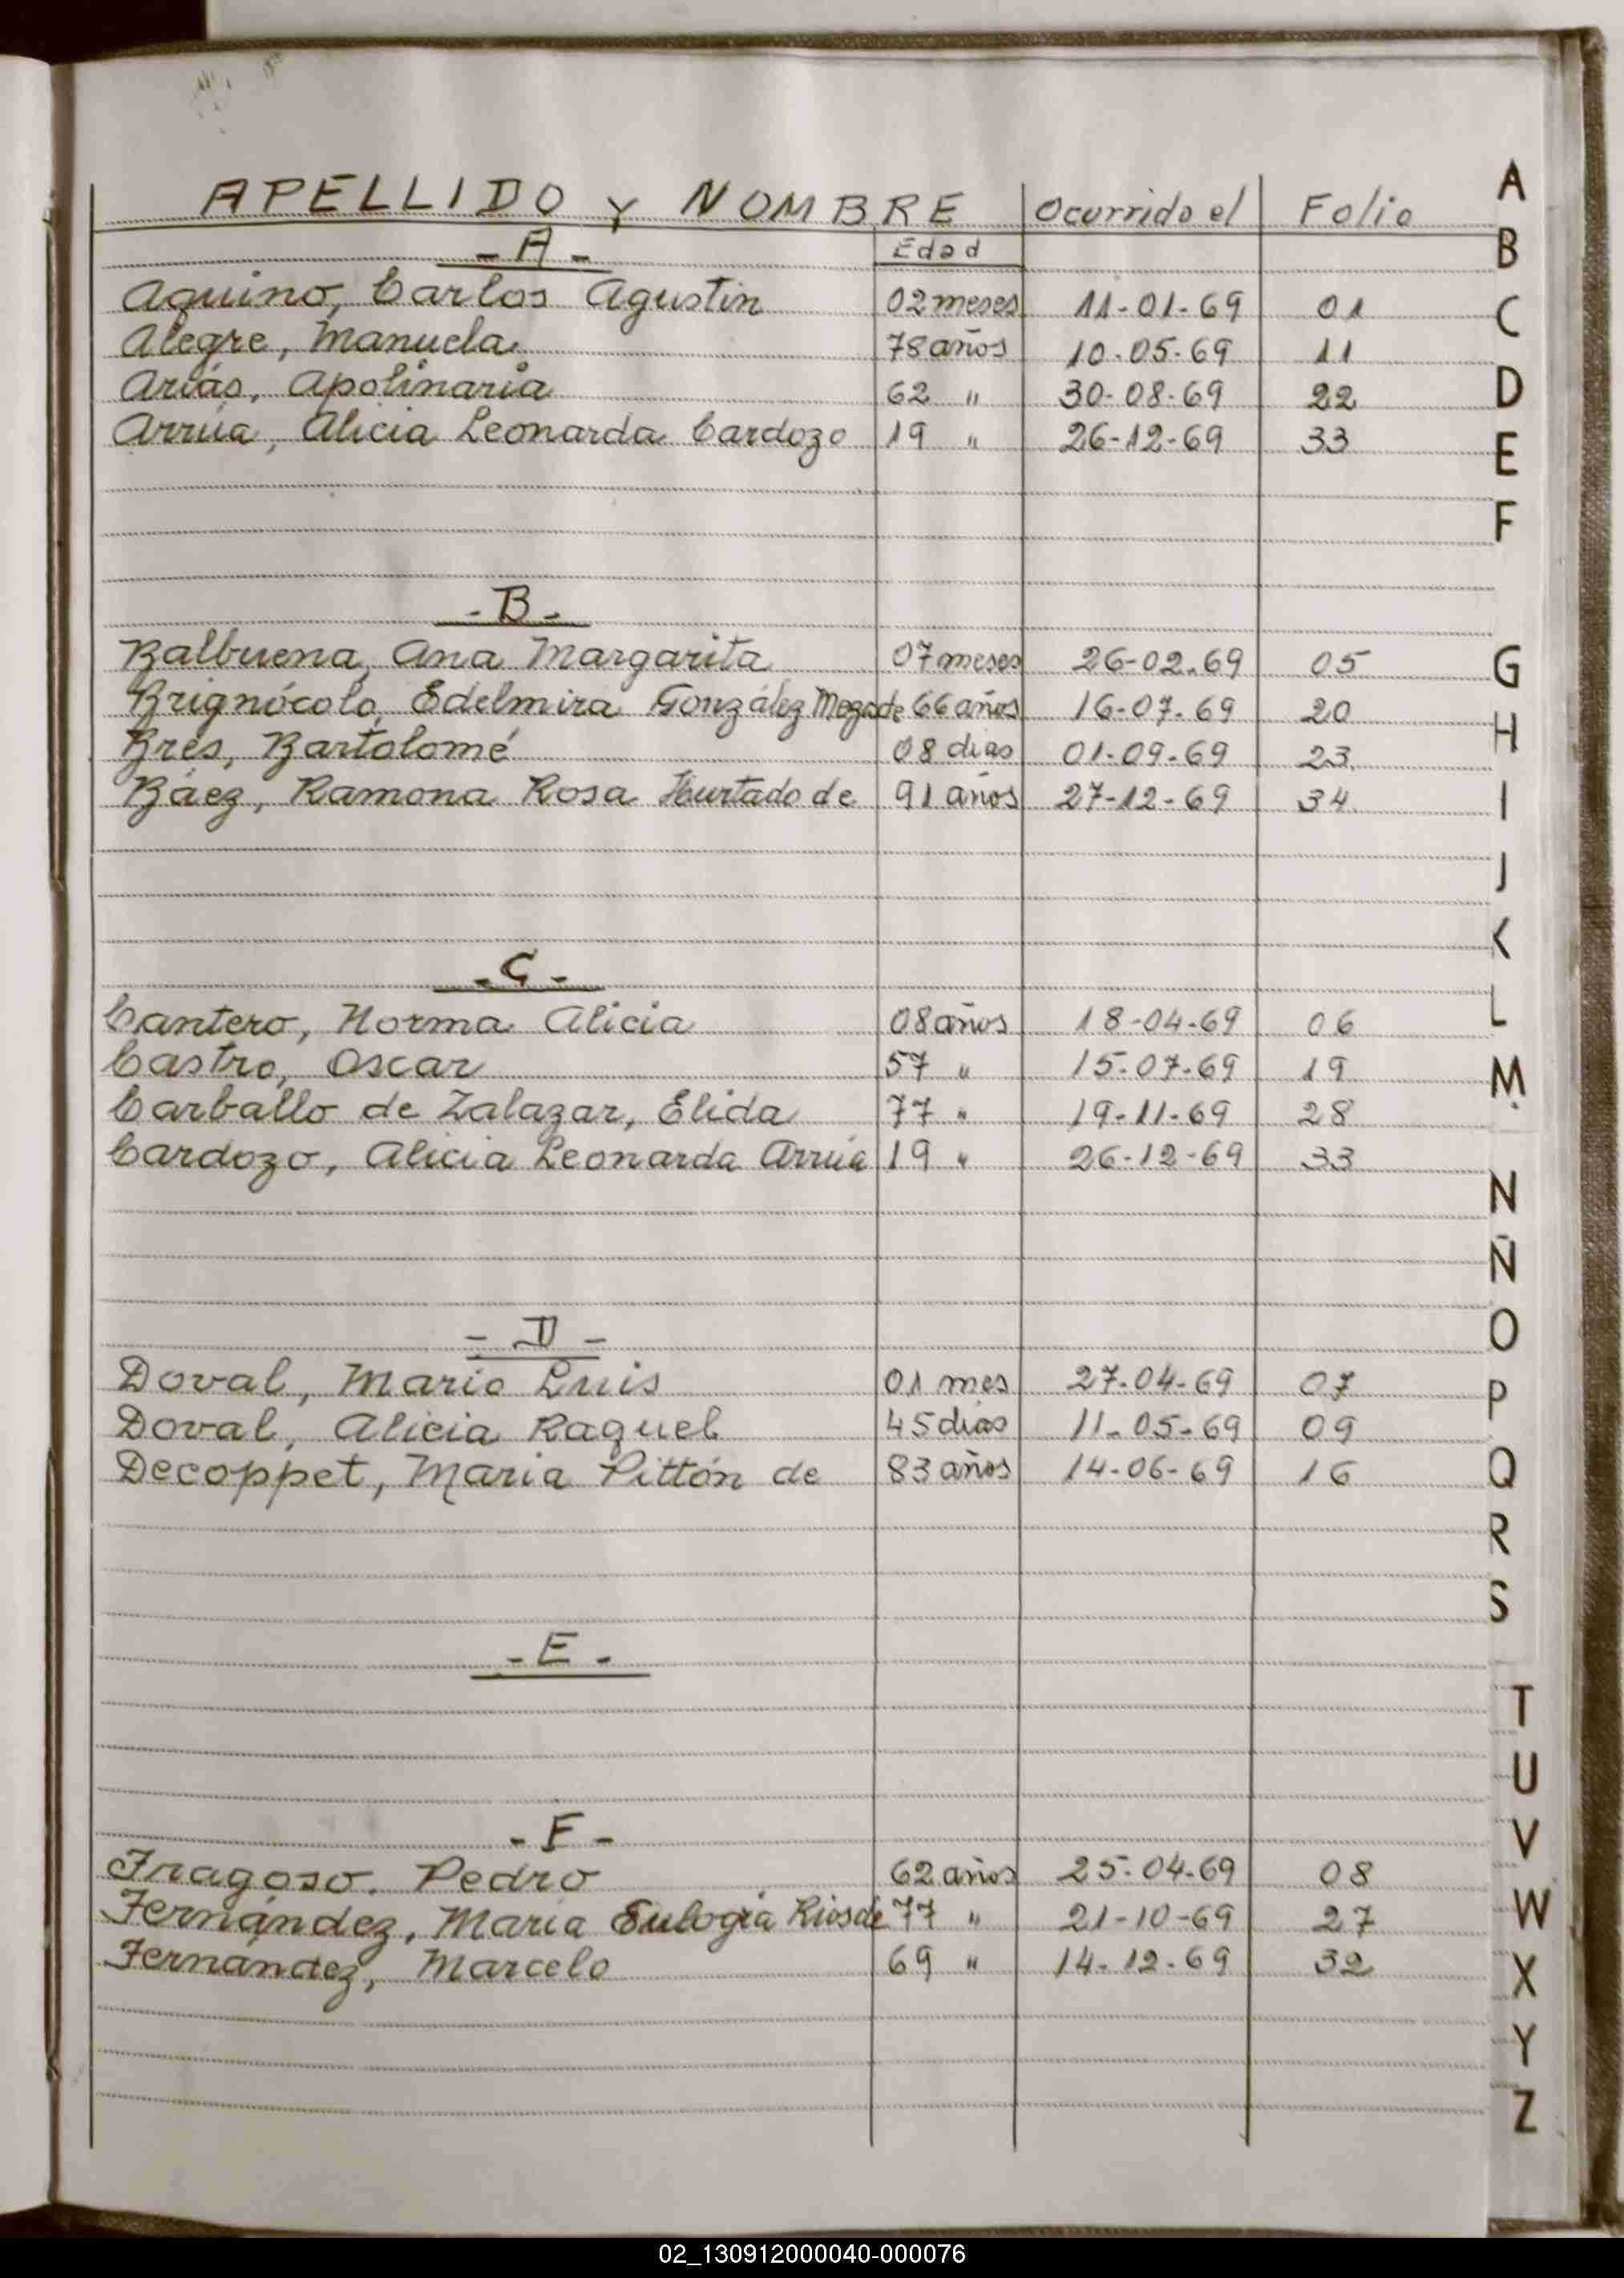 APELLIDO Y NOMBRE Ocurrido el Folio
- A - Edad
Aquino, Carlos Agustin 02 meses 11-01-69 01
Alegre, Manuela 78 años 10-05-69 11
Arias, Apolinaria 62 " 30-08-69 22
Arrúa, Alicia Leonarda Cardozo 19 " 26-12-69 33
- B -
Balbuena, Ana Margarita 07 meses 26-02-69 05
Brignócolo, Edelmira González de 66 años 16-07-69 20
Bres, Bartolomé 08 dias 01-09-69 23
Báez, Ramona Rosa Hurtado de 91 años 27-12-69 34
- C -
Cantero, Norma Alicia 08 años 18-04-69 06
Castro, Oscar 57 " 15-07-69 19
Carballo de Zalazar, Elida 77 " 19-11-69 28
Cardozo, Alicia Leonarda Arrúa 19 " 26-12-69 33
- D -
Doval, Mario Luis 01 mes 27-04-69 07
Doval, Alicia Raquel 45 dias 11-05-69 09
Decoppet, Maria Pittón de 83 años 14-06-69 16
- E -
- F -
Fragoso. Pedro 62 años 25-04-69 08
Fernández, María Eulogia Rios de 77 " 21-10-69 27
Fernández, Marcelo 69 " 14-12-69 32
A
B
C
D
E
F
G
H
I
J
K
L
M
N
Ñ
O
P
Q
R
S
T
U
V
W
X
Y
Z
02_130912000040-000076